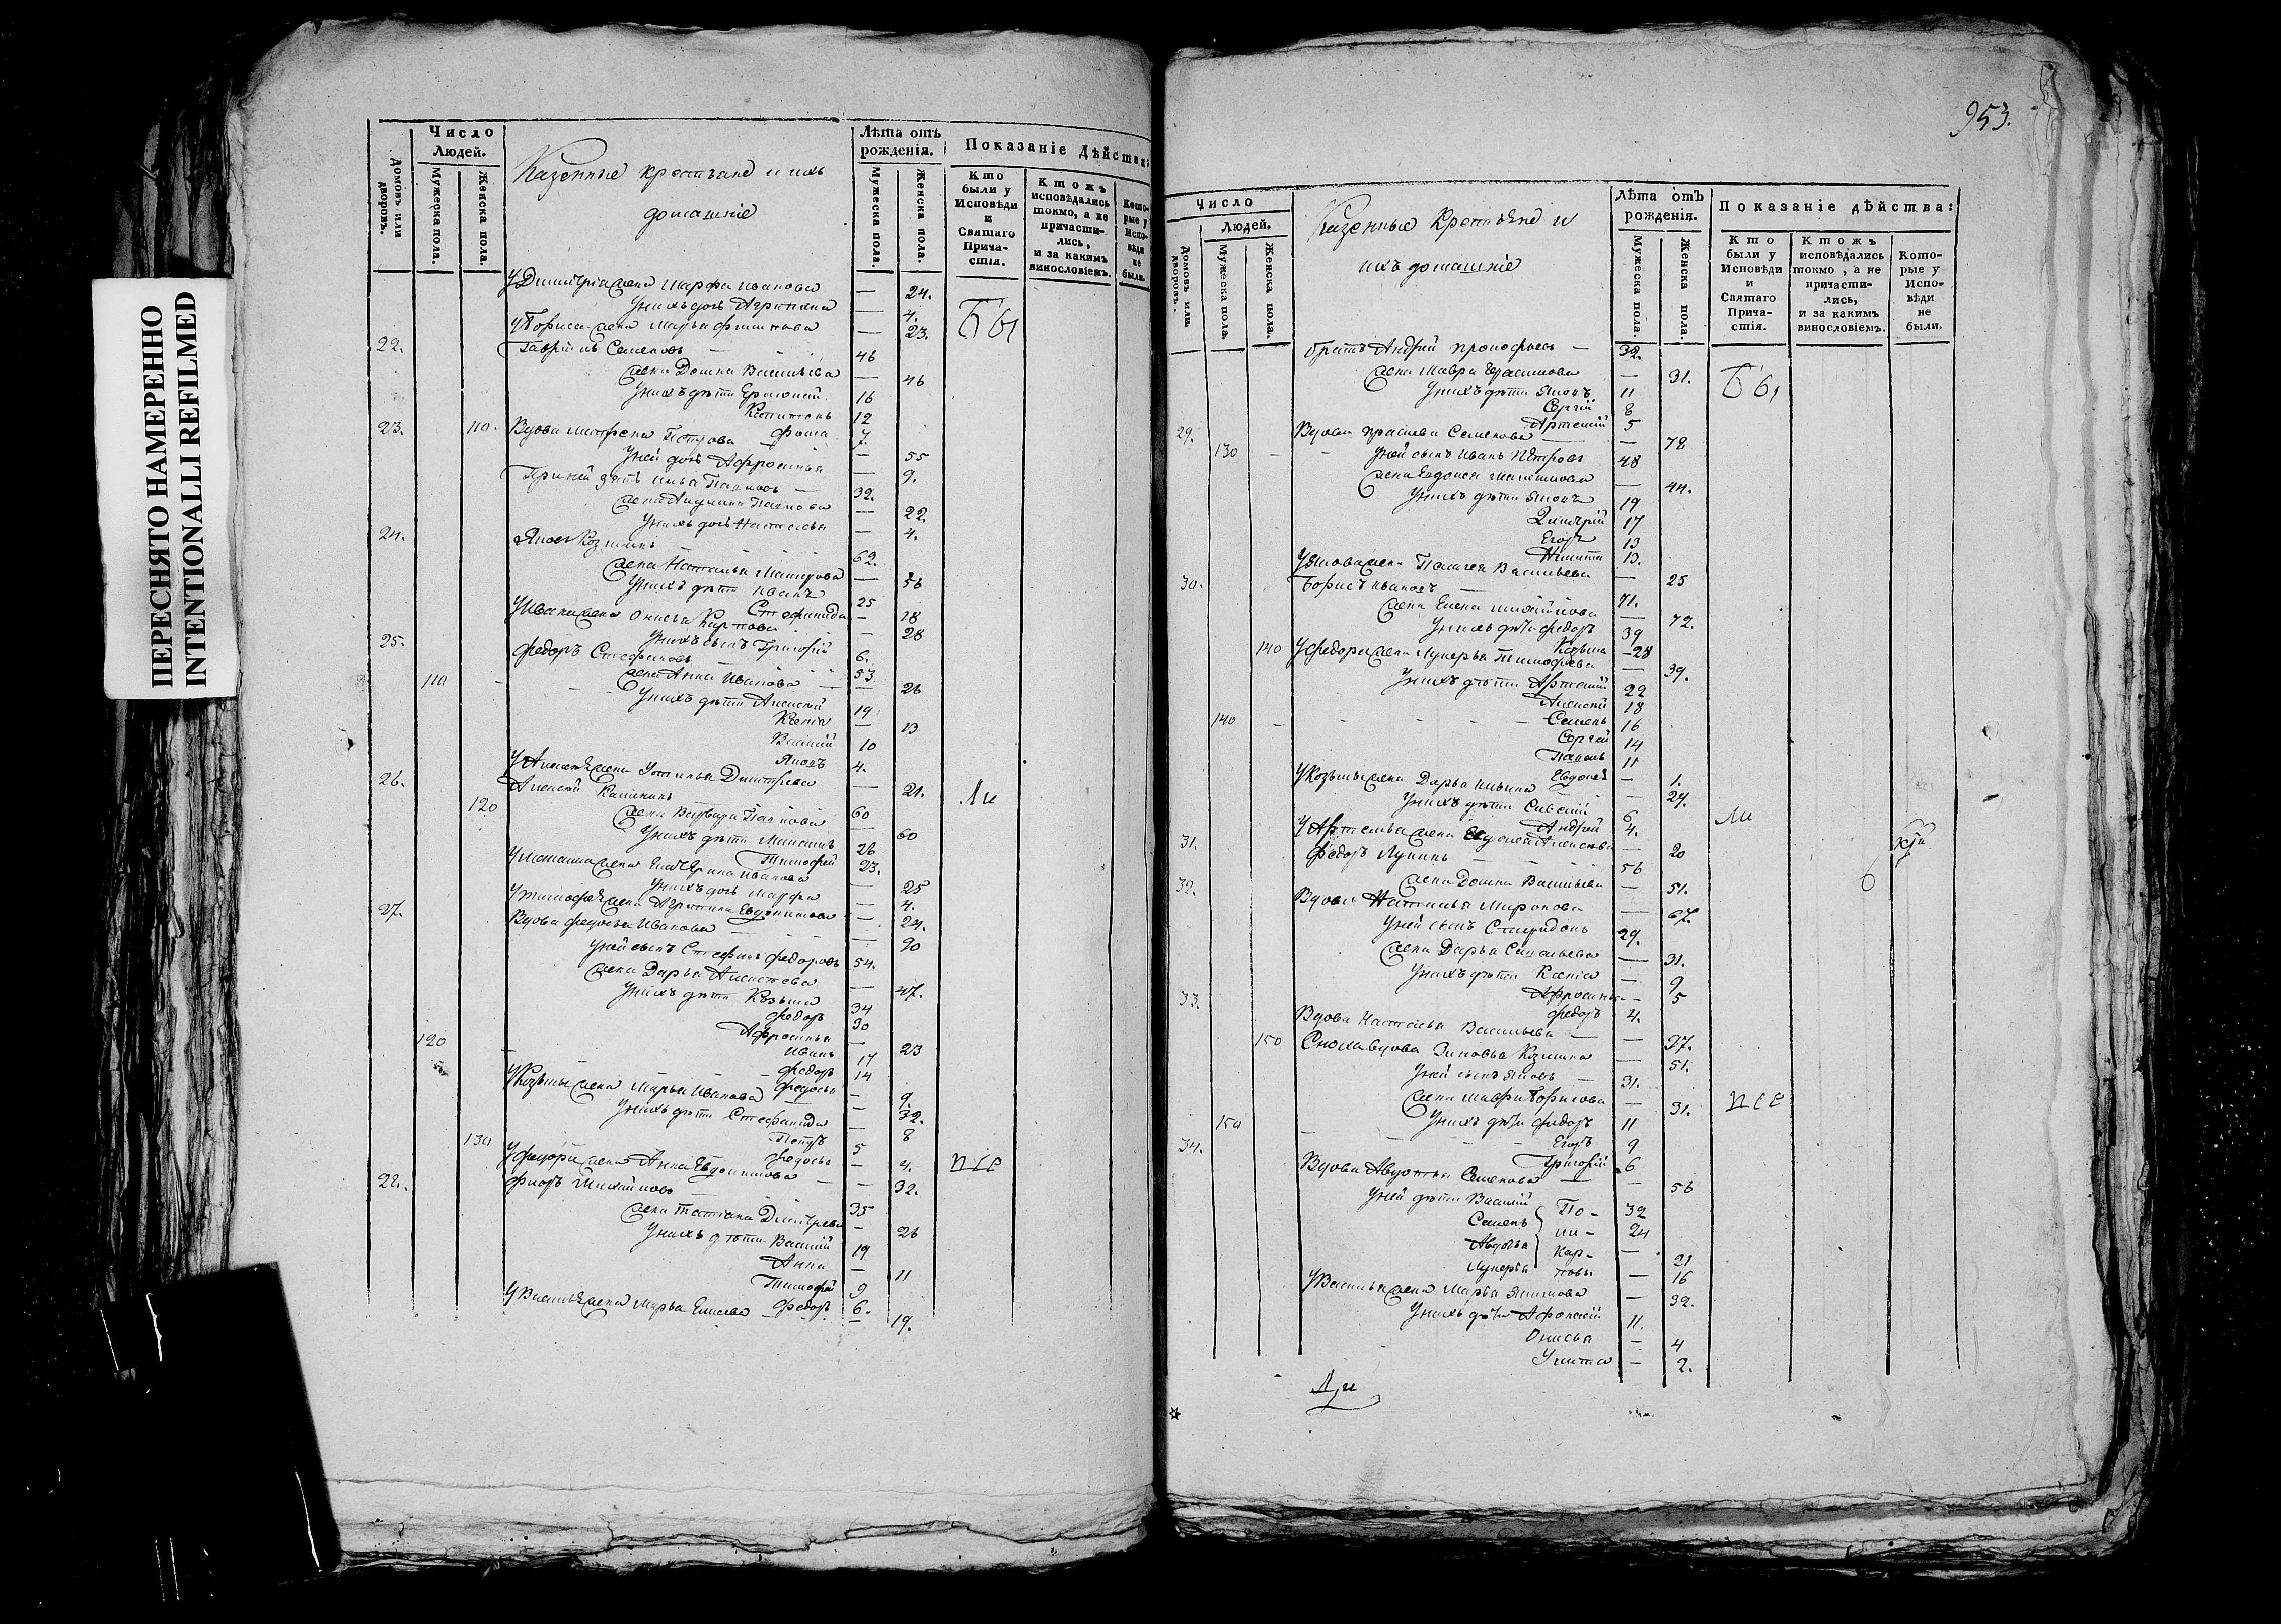 ПЕРЕСНЯТО НАМЕРЕННО
INTENTIONALLI REFILMED
Число
Людей.
Домовъ или дворовъ.
Мужеска пола.
Женска пола.
Казенные крестьяне и ихъ
домашніе
Лѣта отъ
рожденія.
Мужеска пола.
Женска пола.
Показаніе дѣйства:
Кто
были у
Исповѣди
и
Святаго
Прича-
стія.
Ктожъ
исповѣдались
токмо, а не
причасти-
лись,
и за какимъ
винословіемъ.
Кото-
рые у
Испо-
вѣди
не
были.
У Димитрія жена Марфа Иванова — 24.
У нихъ дочь Агрипина — 4.
У Бориса жена Марья — 23.
Бы
22. Гавріилъ Семеновъ — 46
жена Домна Васильева — 46
У нихъ дѣти 16
12
Фома 7.
23. 110. Вдова Матрена Петрова — 55
У ней дочь Афросинья — 9.
зять Илья 32.
жена Акулина — 22
У нихъ дочь Наталья — 4.
24. Яковъ Козминъ 62.
жена Наталья — 56
У нихъ дѣти Иванъ 25
Стефанида — 18
У Ивана жена Онисья Карпова — 28
У нихъ сынъ Григорій 6.
25. Федоръ Стефановъ 53.
110 жена Анна Иванова — 26
У нихъ дѣти Алексѣй 19
Ксенія — 13
Василій 10
Яковъ 4.
У Алексѣя жена Устинья Дмитріева — 21.
26. Алексѣй 60
Ли
120 жена Варвара — 60
У нихъ дѣти Максимъ 26
Тимофей 23.
У Максима жена Катерина Иванова — 25
У нихъ дочь Марфа — 4.
У Тимофея жена Агрипина Евдокимова — 24.
27. Вдова Федосья Иванова — 90
У ней сынъ Стефанъ Федоровъ 54.
жена Дарья Алексѣева — 47.
У нихъ дѣти Козьма 34
Федоръ 30
Афросинья — 23
120 Иванъ 17
Федоръ 14
Федосья — 9.
У Козьмы жена Марья Иванова — 32.
У нихъ дѣти Стефанида — 8
Петръ 5
130 Федосья — 4.
все
У Федора жена Анна Евдокимова — 32.
28. 35
жена Татіана Димитрева — 26
У нихъ дѣти Василій 19
Анна — 11
Тимофей 9
Федоръ 6.
У Василья жена Марья — 19.
953.
Число
Людей.
Домовъ или дворовъ.
Мужеска пола.
Женска пола.
Казенные Крестьяне и
ихъ домашніе
Лѣта отъ
рожденія.
Мужеска пола.
Женска пола.
Показаніе дѣйства:
Кто
были у
Исповѣди
и
Святаго
Прича-
стія.
Ктожъ
исповѣдались
токмо, а не
причасти-
лись,
и за какимъ
винословіемъ.
Кото-
рые у
Испо-
вѣди
не
были.
братъ Андрей Прокофьевъ — 32.
жена Мавра Герасимова — 31.
Бы
У нихъ дѣти Яковъ 11
Сергій 8
Артемій 5
29. Вдова Семенова — 78
130 У ней сынъ Иванъ Петровъ 48
жена Евдокія Максимова — 44.
У нихъ дѣти Яковъ 19
Димитрій 17
Егоръ 13
Никита 13.
У Якова жена Пелагея Васильева — 25
30. Борисъ Ивановъ 71.
жена Елена Михайлова — 72.
У нихъ дѣти Федоръ 39
Козьма 28
140 У Федора жена Лукерья Тимофеева — 39.
У нихъ дѣти Артемій 22
Алексѣй 18
140 Семенъ 16
Сергей 14
Павелъ 11
Евдокія — 1.
У Козьмы жена Дарья Ильина — 24.
У нихъ дѣти Савелій 6
Ли
Андрей 4.
У Артемья жена — 20
31. Федоръ Лукинъ 56
жена Домна Васильева — 51.
32. Вдова Наталья Миронова — 67.
У ней сынъ Спиридонъ 29.
жена Дарья Савельева — 31.
У нихъ дѣти Ксенія — 9
Афросинья — 5
Федоръ 4.
33. Вдова Наталья Васильева — 97.
150 Сноха вдова Зиновья — 51.
У ней сынъ Яковъ 31.
жена Мавра Борисова — 31.
все
150 У нихъ дѣти Федоръ 11
Егоръ 9
Григорій 6
34. Вдова Авдотья Семенова — 56
У ней дѣти Василій По- 32
Семенъ ли- 24
Авдотья кар- — 21
Лукерья повы — 16
У Василья жена Марья — 32.
У нихъ дѣти Афонасій 11.
Онисья — 4
Улита — 2.